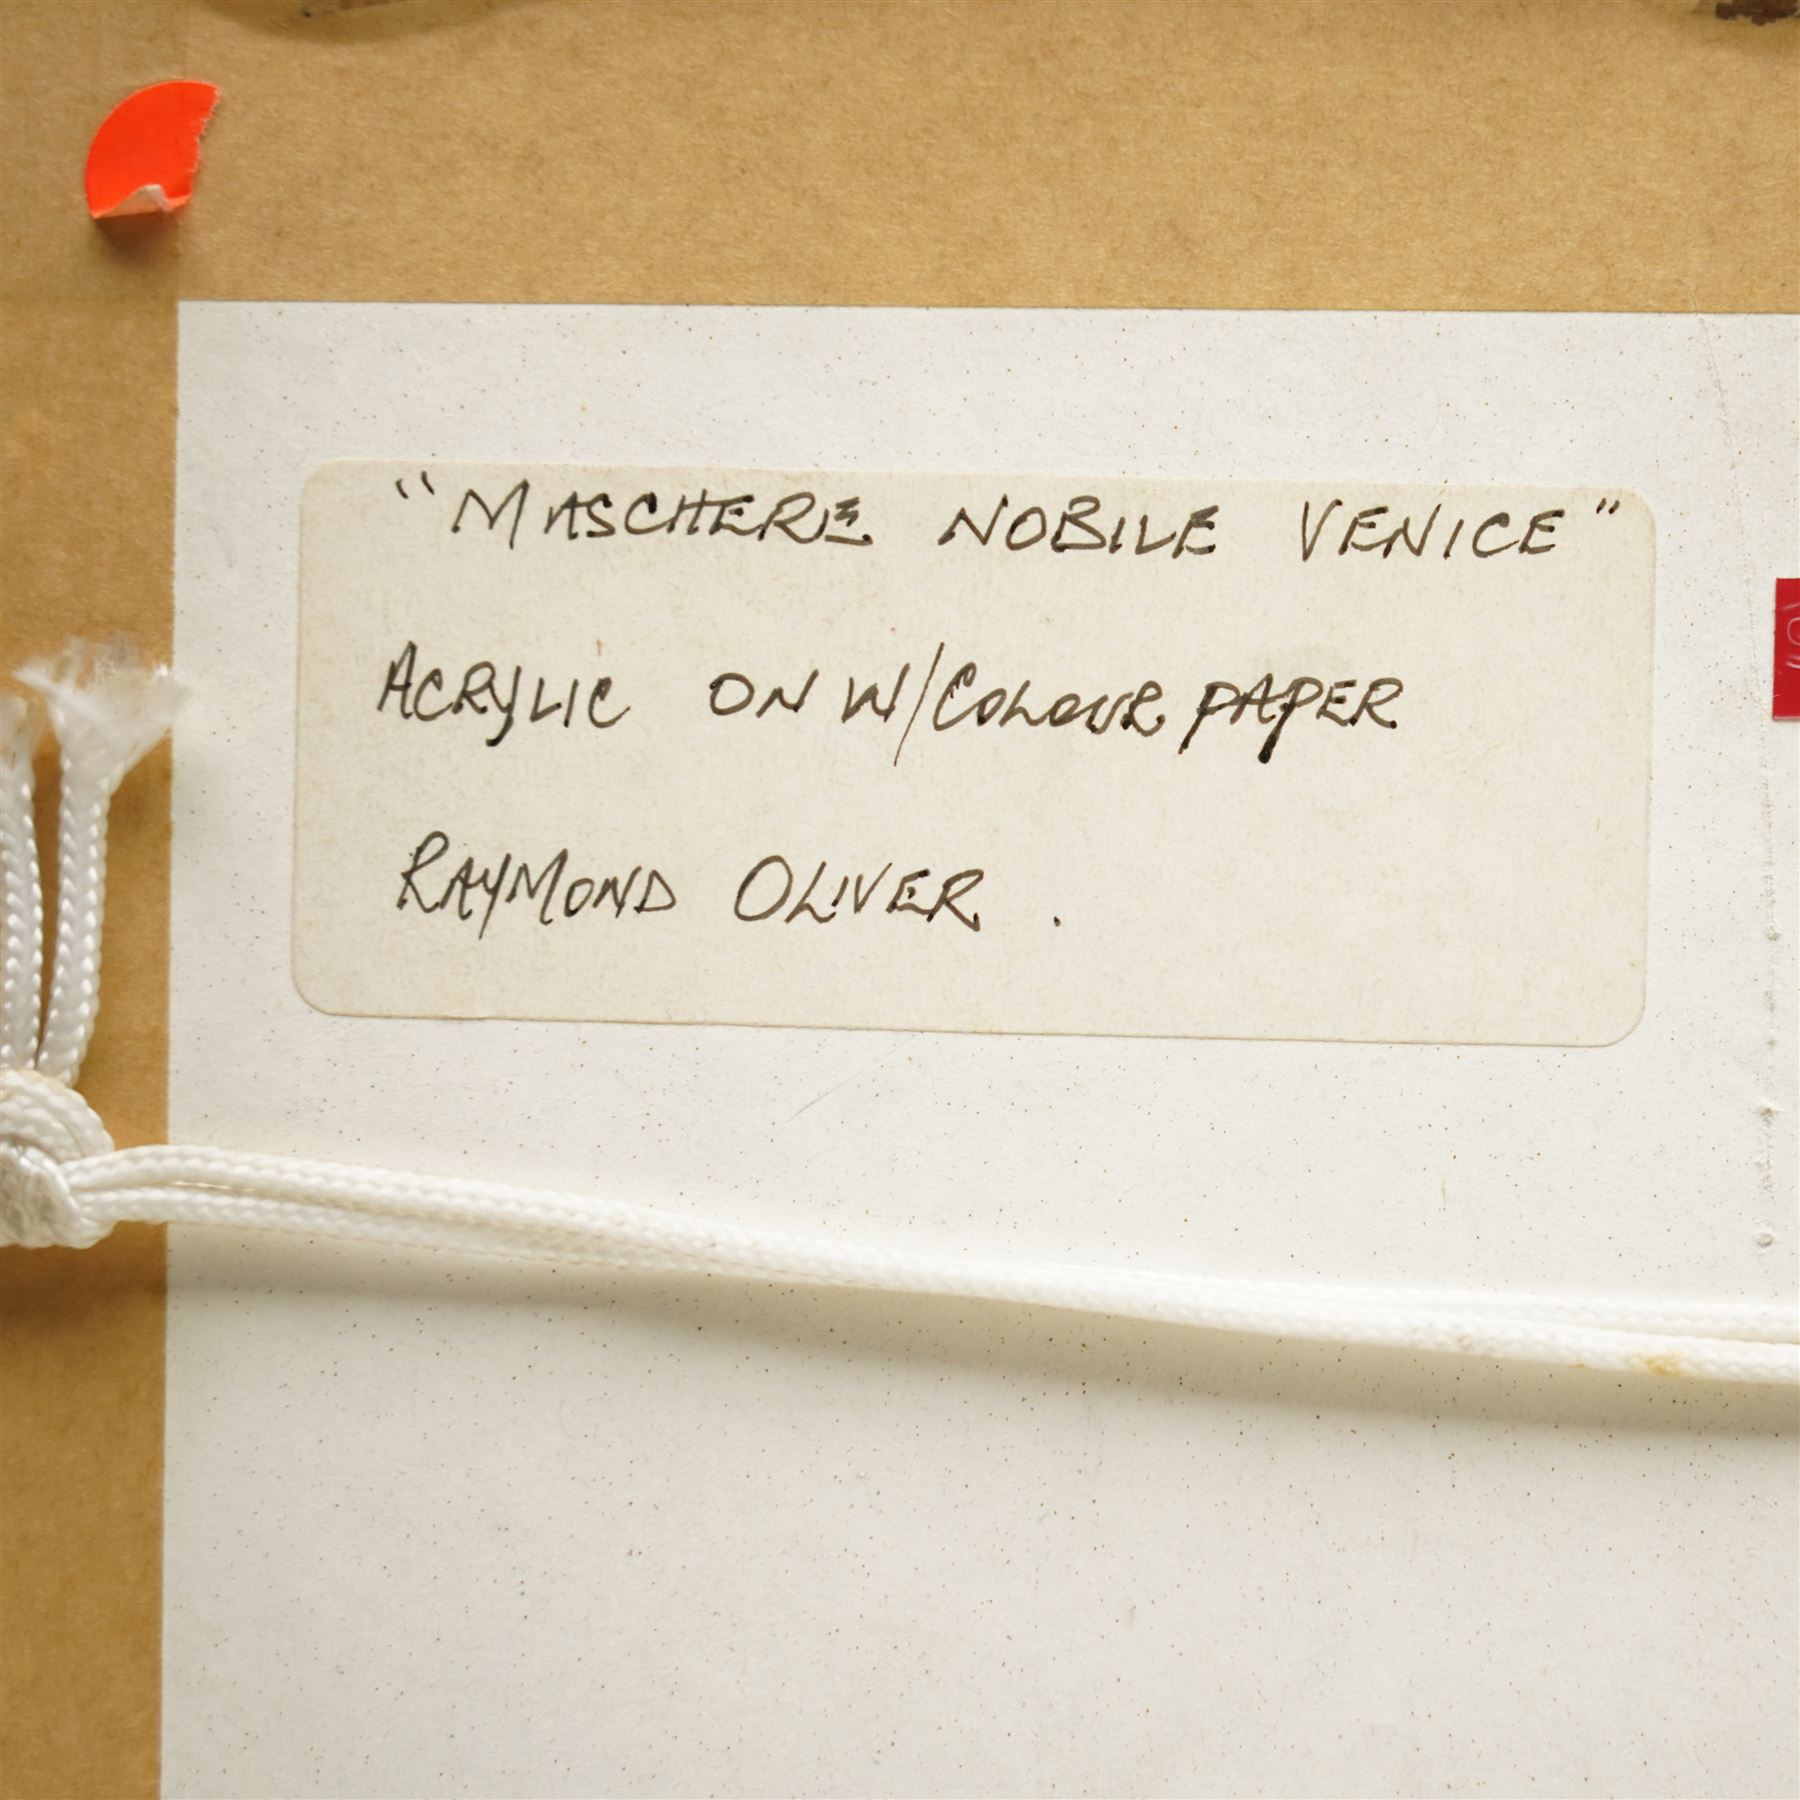 "MASCHERE NOBILE VENICE"
ACRYLIC ON W/COLOUR PAPER
RAYMOND OLIVER .